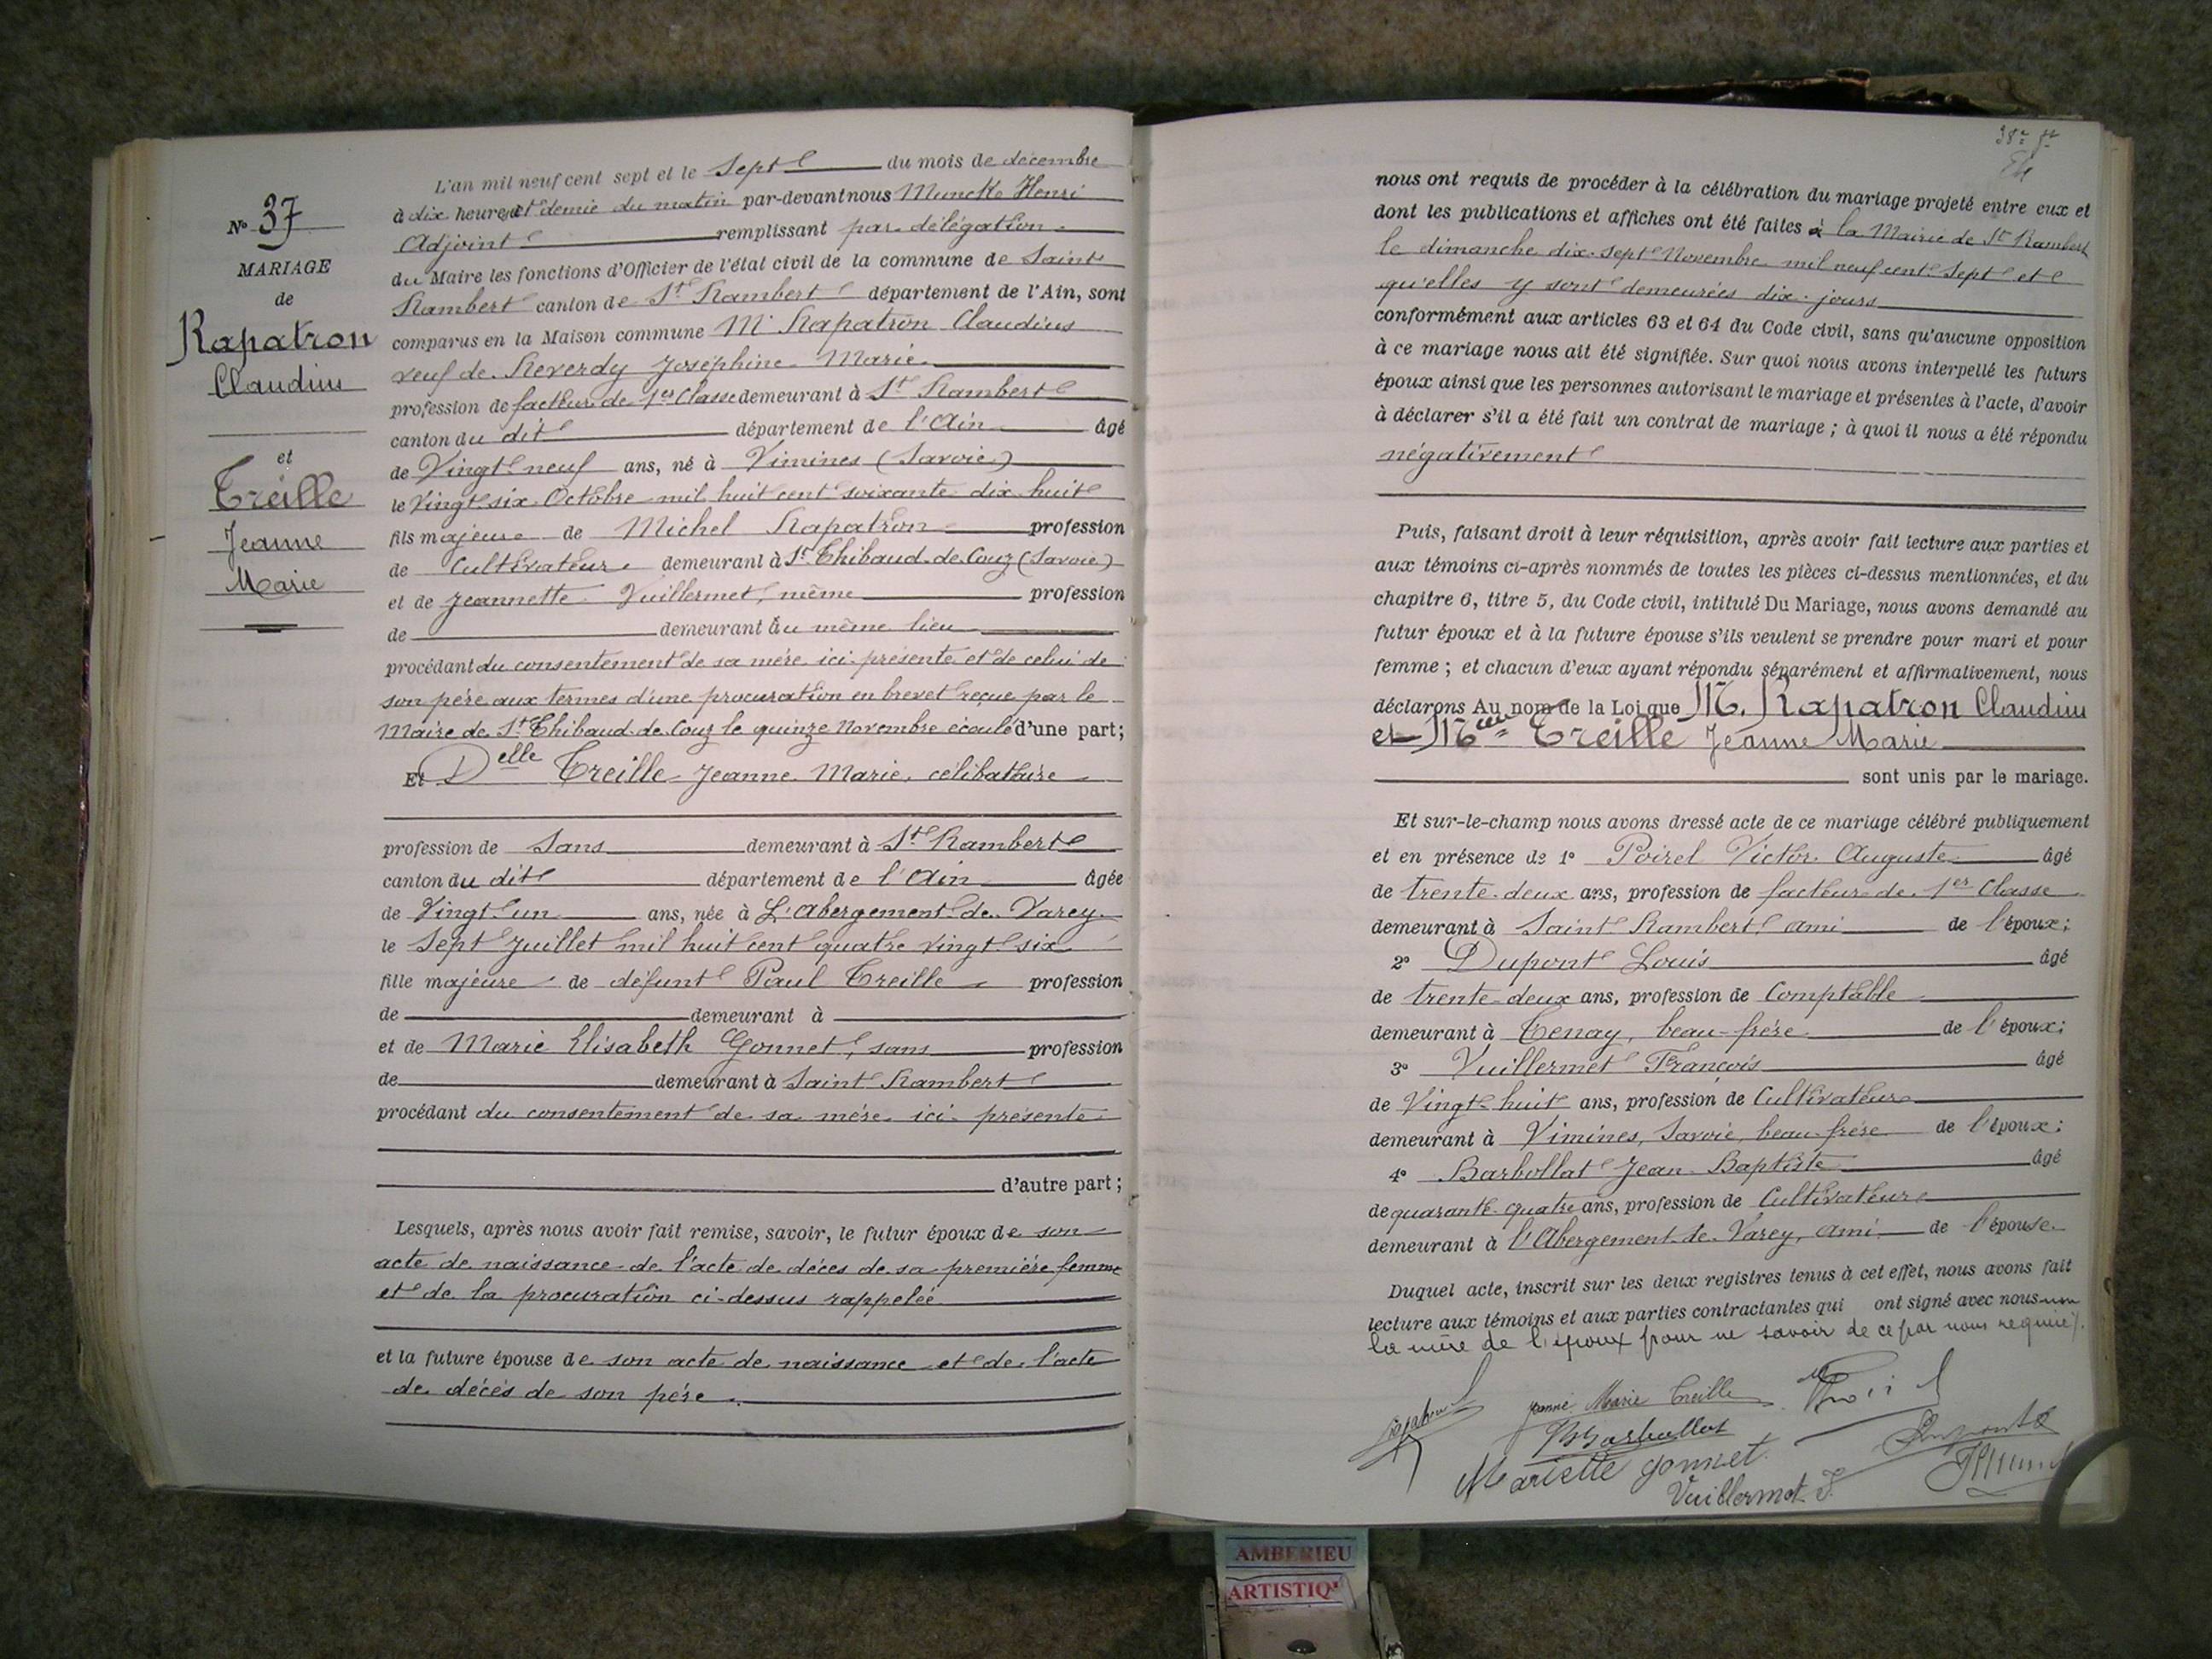 N° 37
MARIAGE
de
Rapatron
Claudius
et
Treille
Jeanne
Marie
L'an mil neuf cent sept et le Sept du mois de décembre
à dix heures et demie du matin par-devant nous Muncke Henri
Adjoint remplissant par délégation
du Maire les fonctions d'Officier de l'état civil de la commune de Saint
Rambert canton de St Rambert département de l'Ain, sont
comparus en la Maison commune Mr Rapatron Claudius
veuf de Reverdy Joséphine Marie
profession de facteur de 1er Classe demeurant à St Rambert
canton du dit département de l'Ain âgé
de Vingt neuf ans, né à Vimines (Savoie)
le Vingt six Octobre mil huit cent soixante dix huit
fils majeur de Michel Rapatron profession
de Cultivateur demeurant à St Thibaud de Couz (Savoie)
et de Jeannette Vuillermet, même profession
de demeurant au même lieu
procédant du consentement de sa mère ici présente et de celui de
son père aux termes d'une procuration en brevet reçue par le
Maire de St Thibaud de Couz le quinze Novembre écoulé d'une part;
Et Delle Treille Jeanne Marie, célibataire
profession de Sans demeurant à St Rambert
canton du dit département de l'Ain âgée
de Vingt un ans, née à L'Abergement de Varey
le Sept Juillet mil huit cent quatre vingt six
fille majeure de défunt Paul Treille profession
de demeurant à
et de Marie Elisabeth Gonnet, sans profession
de demeurant à Saint Rambert
procédant du consentement de sa mère ici présente
d'autre part;
Lesquels, après nous avoir fait remise, savoir, le futur époux de son
acte de naissance de l'acte de décès de sa première femme
et de la procuration ci-dessus rappelée
et la future épouse de son acte de naissance et de l'acte
de décès de son père.
nous ont requis de procéder à la célébration du mariage projeté entre eux et
dont les publications et affiches ont été faites à la Mairie de St Rambert
le dimanche dix-sept Novembre mil neuf cent sept et
qu'elles y sont demeurées dix jours
conformément aux articles 63 et 64 du Code civil, sans qu'aucune opposition
à ce mariage nous ait été signifiée. Sur quoi nous avons interpellé les futurs
époux ainsi que les personnes autorisant le mariage et présentes à l'acte, d'avoir
à déclarer s'il a été fait un contrat de mariage; à quoi il nous a été répondu
négativement
Puis, faisant droit à leur réquisition, après avoir fait lecture aux parties et
aux témoins ci-après nommés de toutes les pièces ci-dessus mentionnées, et du
chapitre 6, titre 5, du Code civil, intitulé Du Mariage, nous avons demandé au
futur époux et à la future épouse s'ils veulent se prendre pour mari et pour
femme; et chacun d'eux ayant répondu séparément et affirmativement, nous
déclarons Au nom de la Loi que M. Rapatron Claudius
et Melle Treille Jeanne Marie
sont unis par le mariage.
Et sur-le-champ nous avons dressé acte de ce mariage célébré publiquement
et en présence de 1° Poirel Victor Auguste âgé
de trente-deux ans, profession de facteur de 1er Classe
demeurant à Saint Rambert ami de l'époux;
2° Dupont Louis âgé
de trente-deux ans, profession de Comptable
demeurant à Tenay, beau-frère de l'époux;
3° Vuillermet François âgé
de Vingt-huit ans, profession de Cultivateur
demeurant à Vimines, Savoie, beau frère de l'époux;
4° Barbollat Jean-Baptiste âgé
de quarante-quatre ans, profession de Cultivateur
demeurant à l'Abergement-de-Varey, ami de l'épouse
Duquel acte, inscrit sur les deux registres tenus à cet effet, nous avons fait
lecture aux témoins et aux parties contractantes qui ont signé avec nous non
la mère de l'époux pour ne savoir de ce par nous requise.
Jeanne Marie Treille
Barbollat
Dupont
Mariette Gonnet
Vuillermet F.
AMBERIEU
ARTISTIQ